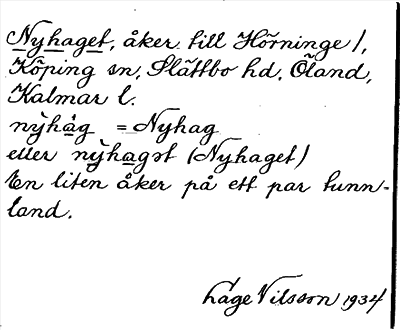 Nyhaget, åker till Hörninge 1,
Köping sn, Slättbo hd, Öland,
Kalmar l.
nỳhåg = Nyhag
eller nỳhagət (Nyhaget)
En liten åker på ett par tunn-
land.
Låge Nilsson 1934